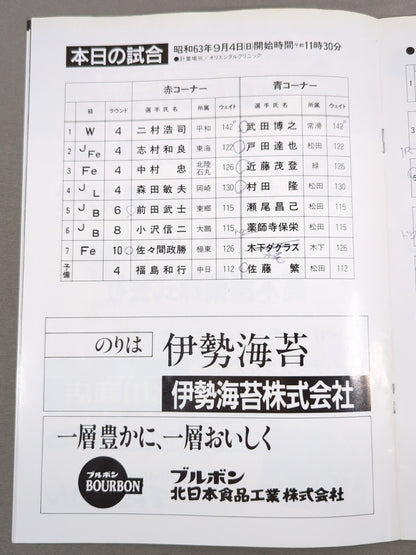 本日の試合 昭和63年9月4日(日)開始時間午前11時30分
●計量場所／オリエンタルクリニック
赤コーナー 青コーナー
級 ラウンド 選手氏名 所属 ウェイト 選手氏名 所属 ウェイト
1 W 4 二村浩司 平和 142° 武田博之 常滑 142°
2 JFe 4 志村和良 東海 122 戸田達也 松田 122
3 Fe 4 中村忠 北陸石丸 126 近藤茂登 緑 126
4 JL 4 森田敏夫 岡崎 130 村田隆 松田 130
5 JB 6 前田武士 東郷 115 瀬尾昌己 松田 115
6 JB 8 小沢信二 大鵬 115 薬師寺保栄 松田 115
7 Fe 10 佐々間政勝 極東 126 木下ダグラス 木下 126
予備 4 福島和行 中日 112 佐藤繁 松田 112
のりは 伊勢海苔
伊勢海苔株式会社
一層豊かに、一層おいしく
ブルボン
BOURBON
ブルボン
北日本食品工業株式会社